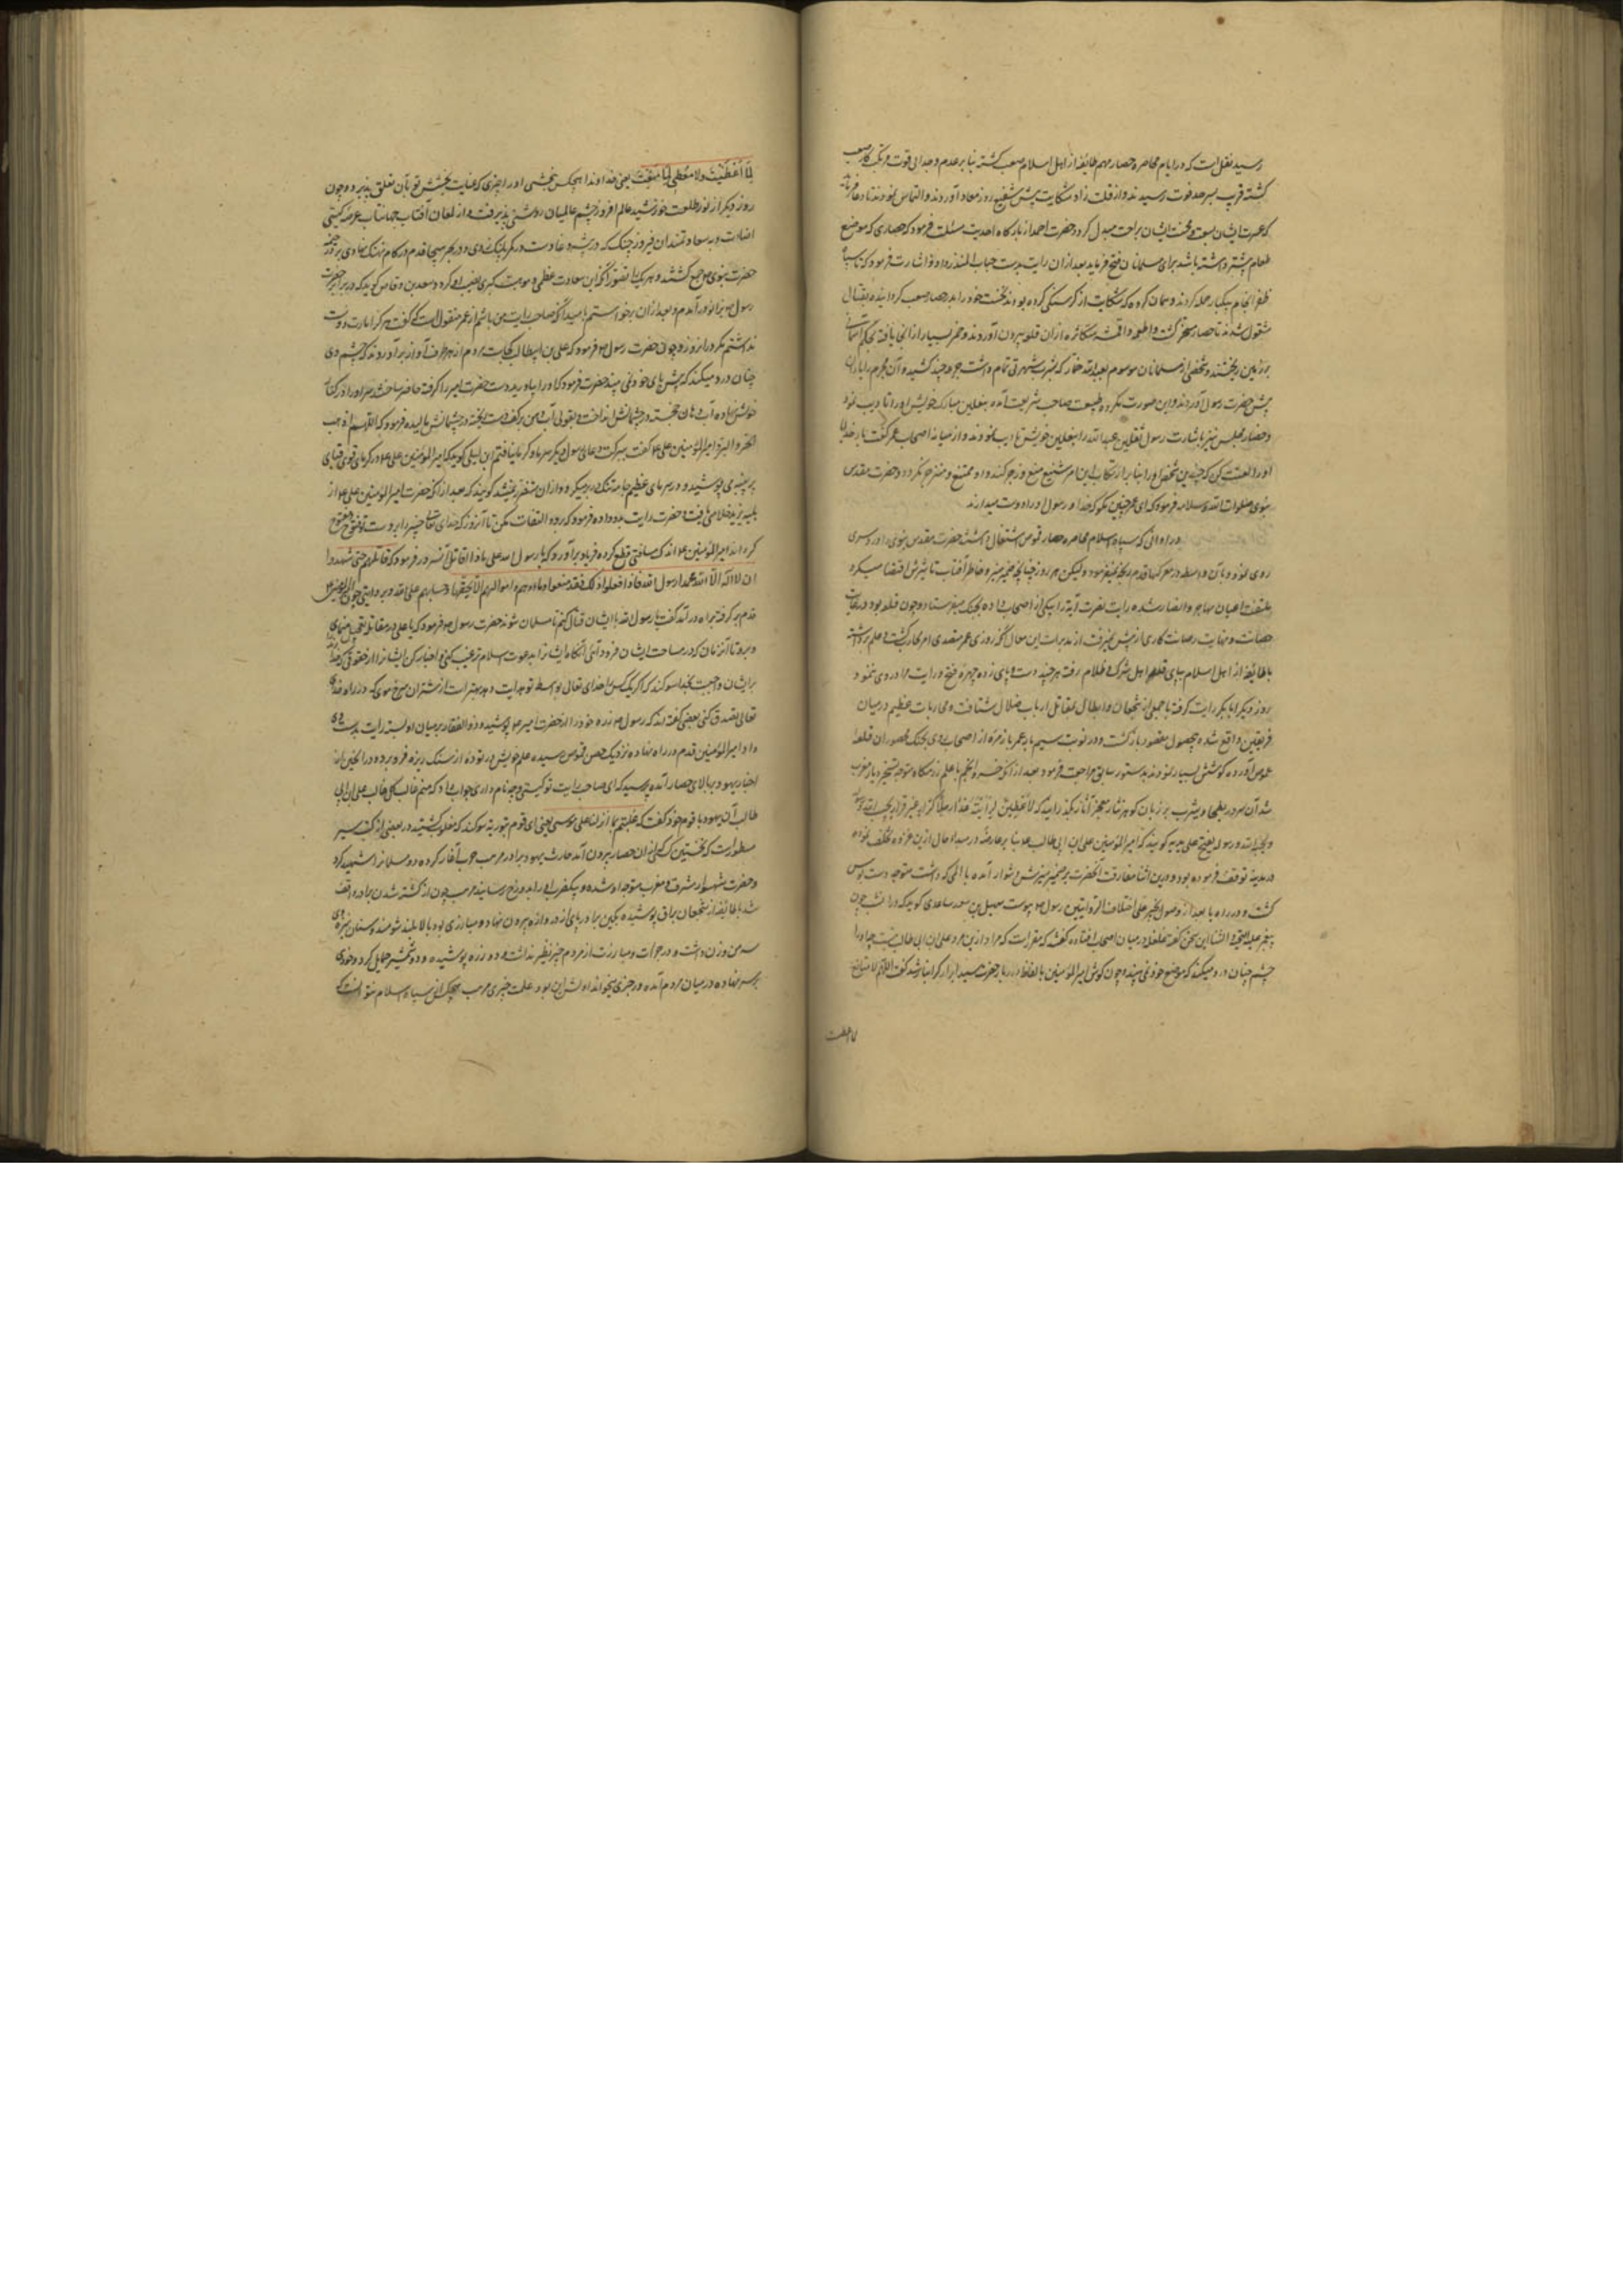 رسید نقل است که در ایام محاصره حصار مهم طایفه از اهل اسلام صعب گشته بنا بر عدم وجدانی قوت
گشته قریب بسرحد فوت رسیدند و از قلت زاد شکایت پیش شفیع روز معاد آوردند و التماس نمودند تا دعا فرماید
که عسرت ایشان بسعت و محنت ایشان براحت مبدل گردد حضرت احمد از بارگاه احدیت مسئلت فرمود که حصاری که موضع
طعام بیشتر داشته باشد برای مسلمانان فتح فرماید بعد از آن رایت بدست حباب المنذر داد و اشارت فرمود که تا سپاه
ظفر انجام بیکبار حمله کردند و همان گروه که شکایت از گرسنگی کرده بودند نخست خود را بدر حصار صعب گردانیده بقتال
مشغول شدند تا حصار مسخر گشت و اطعمه و اقمشه متکاثره از آن قلعه بیرون آوردند و خمر بسیار از آنجا یافته بحکم
بر زمین ریختند و شخصی از مسلمانان موسوم بعبد الله خمار که بشرب شهرتی تمام داشت جرعه چند کشیده آن مجرم را یاران
پیش حضرت رسول آوردند و این صورت مکروه طبیعت صاحب شریعت آمده بنعلین مبارک خویش او را تادیب نمود
و حضار مجلس نیز باشارت رسول ثقلین عبد الله را بنعلین خویش تادیب نمودند و از میانه اصحاب عمر گفت بار خدایا
او را لعنت کن که چندین شخص او را بنا بر ارتکاب این امر شنیع منع و زجر کنند و او ممتنع و منزجر نگردد و حضرت مقدس
نبوی صلوات الله و سلامه فرمود که ای عمر چنین مگو که خدا و رسول او را دوست میدارند
در اوانی که سپاه اسلام بمحاصره حصار قموص اشتغال داشتند حضرت مقدس نبوی را درد سری
روی نمود و بآن واسطه در معرکها قدم رنجه نمیفرمود و لیکن هر روز چنانچه ضمیر منیر و خاطر آفتاب تاثیرش اقتضا میکرد
ملتفت اعیان مهاجر و انصار شده رایت نصرت آیت را بیکی از اصحاب داده بجنگ میفرستاد و چون قلعه بود در غایت
حصانت و نهایت رصانت کاری از پیش نمیرفت از مدبرات این مقال آنکه روزی عمر متصدی امر کارگشت و علم برداشته
با طایفه از اهل اسلام بپای قلعه اهل شرک و ظلام رفت هر چند دست و پای زد چهره فتح در رایت مراد روی ننمود
روز دیگر ابابکر رایت گرفته با جمعی از شجعان و ابطال بمقاتل ارباب ضلال شتافت و محاربات عظیم در میان
فریقین واقع شده بی حصول مقصود بازگشت و در نوبت سیم باز عمر با زمره از اصحاب روی بجنگ محصوران قلعه
قموص آورده کوشش بسیار نمودند بدستور سابق مراجعت فرمود بعد از آنکه خسرو انجم با علم زرنگار متوجه تسخیر دیار مغرب
شد آن سرور بطحا و یثرب بر زبان گوهر نثار معجز آثار بگذرانید که لاعطین الرایة غدا رجلا کرار غیر فرار یحب الله و رسوله
و یحبه الله و رسوله یفتح علی یدیه گویند که امیر المؤمنین علی ابن ابی طالب بنا بر عارضه رمد در مبدا حال از این غزوه تخلف نموده
در مدینه توقف فرموده بود و درین اثنا مفارقت آنحضرت بر ضمیر منیرش دشوار آمده با المی که داشت متوجه دست بوس
گشت و در راه یا بعد از وصول بخیبر علی اختلاف الروایتین رسول پیوست سهیل بن سعد ساعدی گوید که در آن شب چون
پیغمبر علیه التحیة و الثنا این سخن گفت غلغله در میان اصحاب افتاده گفتند که مقرر است که مراد ازین مرد علی ابن ابی طالب نیست چه او را
چشم چنان درد میکند که موضع خود نمی بیند و چون گوش امیر المؤمنین بالفاظ دربار حضرت سید ابرار گرانبار شد گفت اللهم لا مانع
لما اعطیت
لما اعطیت ولا معطی لما منعت یعنی خداوندا هیچکس نبخشی او را چیزی که عنایت بخشش تو بآن تعلق پذیرد و چون
روز دیگر از نور طلعت خورشید عالم افروز چشم عالمیان روشنی پذیرفت و از لمعان آفتاب جهانتاب عرصه گیتی
حضرت نبوی مجتمع گشتند و هر یک را تصور آنکه این سعادت عظمی و موهبت کبری نصیب او گردد سعد بن وقاص گوید که در برابر حضرت
رسول بزانو درآمدم و بعد از آن برخواستم بامید آنکه صاحب رایت من باشم از عمر منقولست که گفت هرگز امارت دوست
نداشتم مگر در آن روز و چون حضرت رسول فرمود که علی بن ابیطالب کجاست مردم از هر طرف آواز برآوردند که چشم وی
چنان درد میکند که پیش پای خود نمی بیند حضرت فرمود که او را بیاورید دست حضرت امیر را گرفته حاضر ساختند سر او را در کنار
خویش نهاده آب دهان خجسته در چشمانش انداخت و بقولی آب دهن بر کف دست ریخته در چشمانش مالیده فرمود که اللهم اذهب
الحر و البرد امیر المؤمنین علی گفت ببرکت دعای رسول دیگر سرما و گرما نیافتم ابن لیلی گوید که امیر المؤمنین علی در گرمای قوی قبای
پر پنبه می پوشید و در سرمای عظیم جامه تنک در بر میکرد و از آن متضرر نمیشد گویند که بعد از آنکه حضرت امیر المؤمنین علی از
بلیه رمد خلاصی یافت حضرت رایت بدو داده فرمود که برو و التفات مکن تا آنروز که خدای تعالی خیبر را بر دست تو مفتوح
گرداند امیر المؤمنین اندک مسافتی قطع کرده فریاد برآورد که یا رسول الله علی ماذا اقاتل آنسرور فرمود که قاتلهم حتی یشهدوا
ان لا اله الا الله محمد رسول الله فاذا فعلوا ذلک فقد منعوا دماءهم و اموالهم الا بحقها و حسابهم علی الله و بروایتی چون امیر المؤمنین
علم برگرفته براه درآمد گفت یا رسول الله با ایشان قتال کنم تا مسلمان شوند حضرت رسول فرمود که یا علی در مقاتله تعجیل منمای
و برو تا آنزمان که در ساحت ایشان فرود آئی آنگاه ایشانرا بدعوت اسلام ترغیب کنی و اخبار کن ایشانرا از حقوقی که خدا
بر ایشان واجبست بخدا سوگند که اگر یک کس را خدای تعالی بواسطه تو هدایت دهد بهتر است از شتران سرخ موی که در راه خدای
تعالی تصدق کنی بعضی گفته اند که رسول زره خود را در حضرت امیر پوشیده و ذوالفقار بر میان او بسته رایت بدست وی
داد امیر المؤمنین قدم در راه نهاده نزدیک حصن قموص رسیده علم خویش در توده از سنگ ریزه فرو برده در آنحین از
احبار یهود بر بالای حصار آمده پرسید که ای صاحب رایت تو کیستی و چه نام داری جواب داد که منم غالب کل غالب علی ابن ابی
طالب آن یهود با قوم خود گفت که غلبتم بما انزل علی موسی یعنی ای قوم بتوریة سوگند که مغلوب گشتید در بعضی از کتب سیر
مسطورست که نخستین کسی که از آن حصار بیرون آمد حارث یهود برادر مرحب حرب آغاز کرده دو مسلمانرا شهید کرد
و حضرت شهسوار مشرق و مغرب متوجه او شده و بیکضرب او را بدوزخ رسانید مرحب چون از کشته شدن برادر واقف
شد با طایفه از شجعان یراق پوشیده بکین برادر پای از دروازه بیرون نهاد و مبارزی بود بالا بلند تنومند و سنان نیزه وی
سه من وزن داشت و در جرات و مبارزت از مردم خیبر نظیر نداشت و دو زره پوشیده و دو شمشیر حمایل کرد و خودی
بر سر نهاده در میان مردم آمده و رجزی بخواند اولش این بود علمت خیبر انی مرحب هیچکس از سپاه اسلام نتوانست که